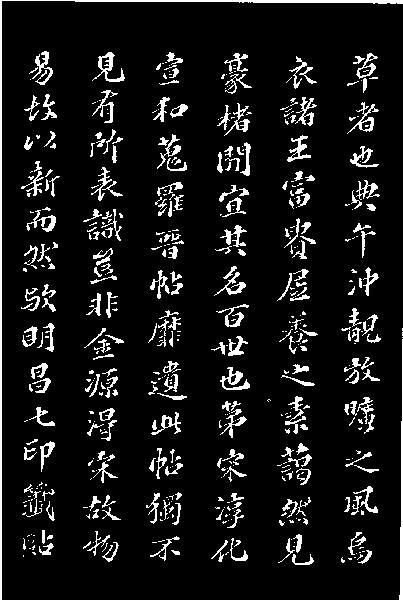 草者也典午沖靚放曠之風烏
衣諸王富貴居養之素藹然見
豪楮間宜其名百世也第宋淳化
宣和蒐羅晉帖靡遺此帖獨不
見有所表識豈非金源得宋故物
易故以新而然歟明昌七印籤貼